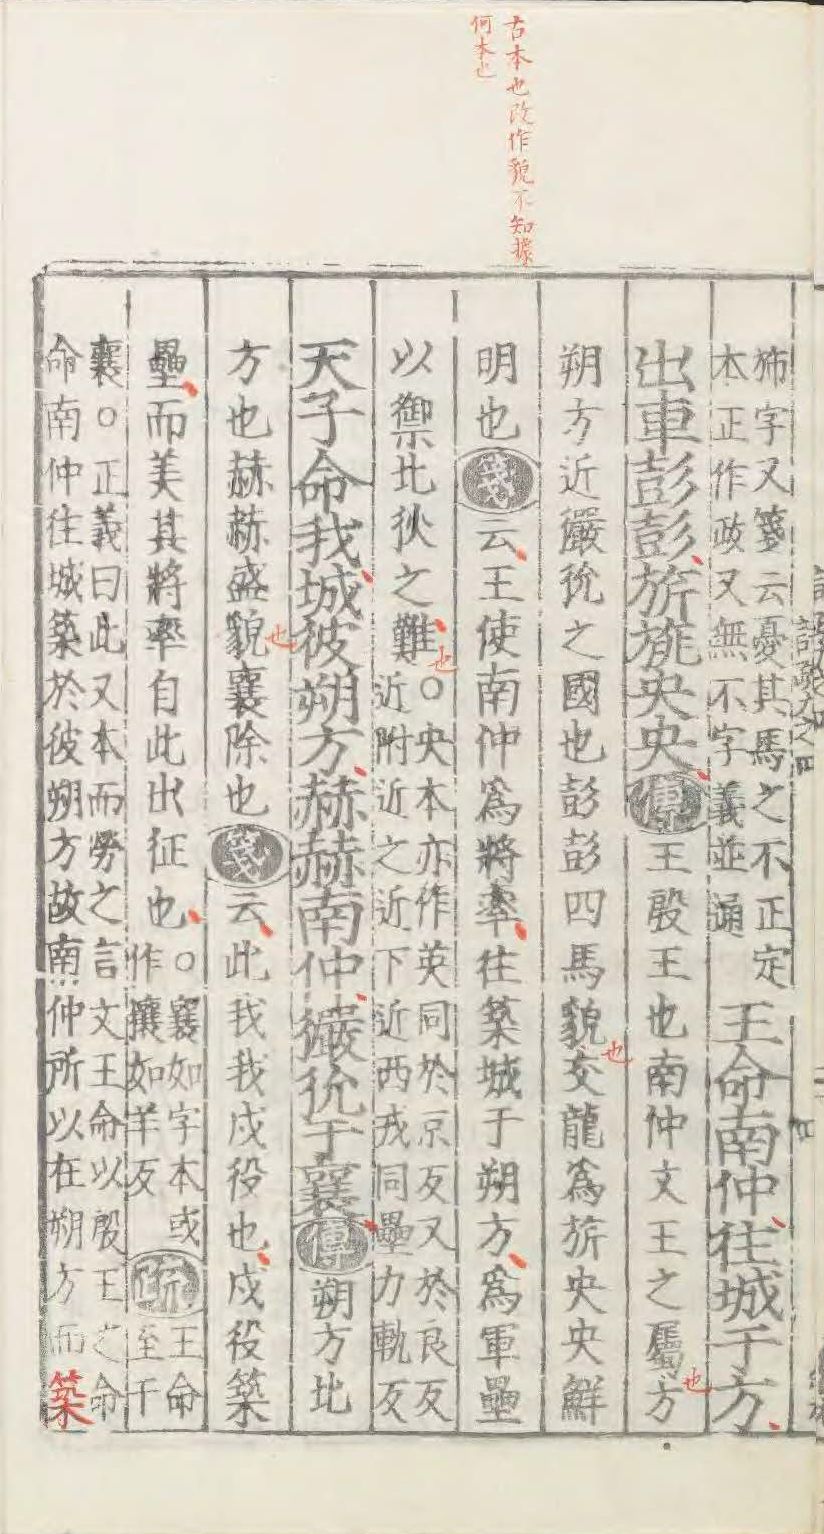 古本也改作貌不知據
何本也
斾字又箋云憂其馬之不正定
本正作政又無不字義並通
王命南仲往城于方
出車彭彭旂旐央央傳王殷王也南仲文王之屬方也
朔方近玁狁之國也彭彭四馬貌也交龍為旂央央鮮
明也箋云王使南仲為將率往築城于朔方為軍壘
以禦北狄之難也
○央本亦作英同於京反又於良反
近附近之近下近西戎同壘力軌反
天子命我城彼朔方赫赫南仲玁狁于襄傳朔方北
方也赫赫盛貌也襄除也箋云此我我戍役也戍役築
壘而美其將率自此出征也
○襄如字本或
作攘如羊反
疏
王命
至于
襄○正義曰此又本而勞之言文王命以殷王之命
命南仲往城築於彼朔方故南仲所以在朔方而築